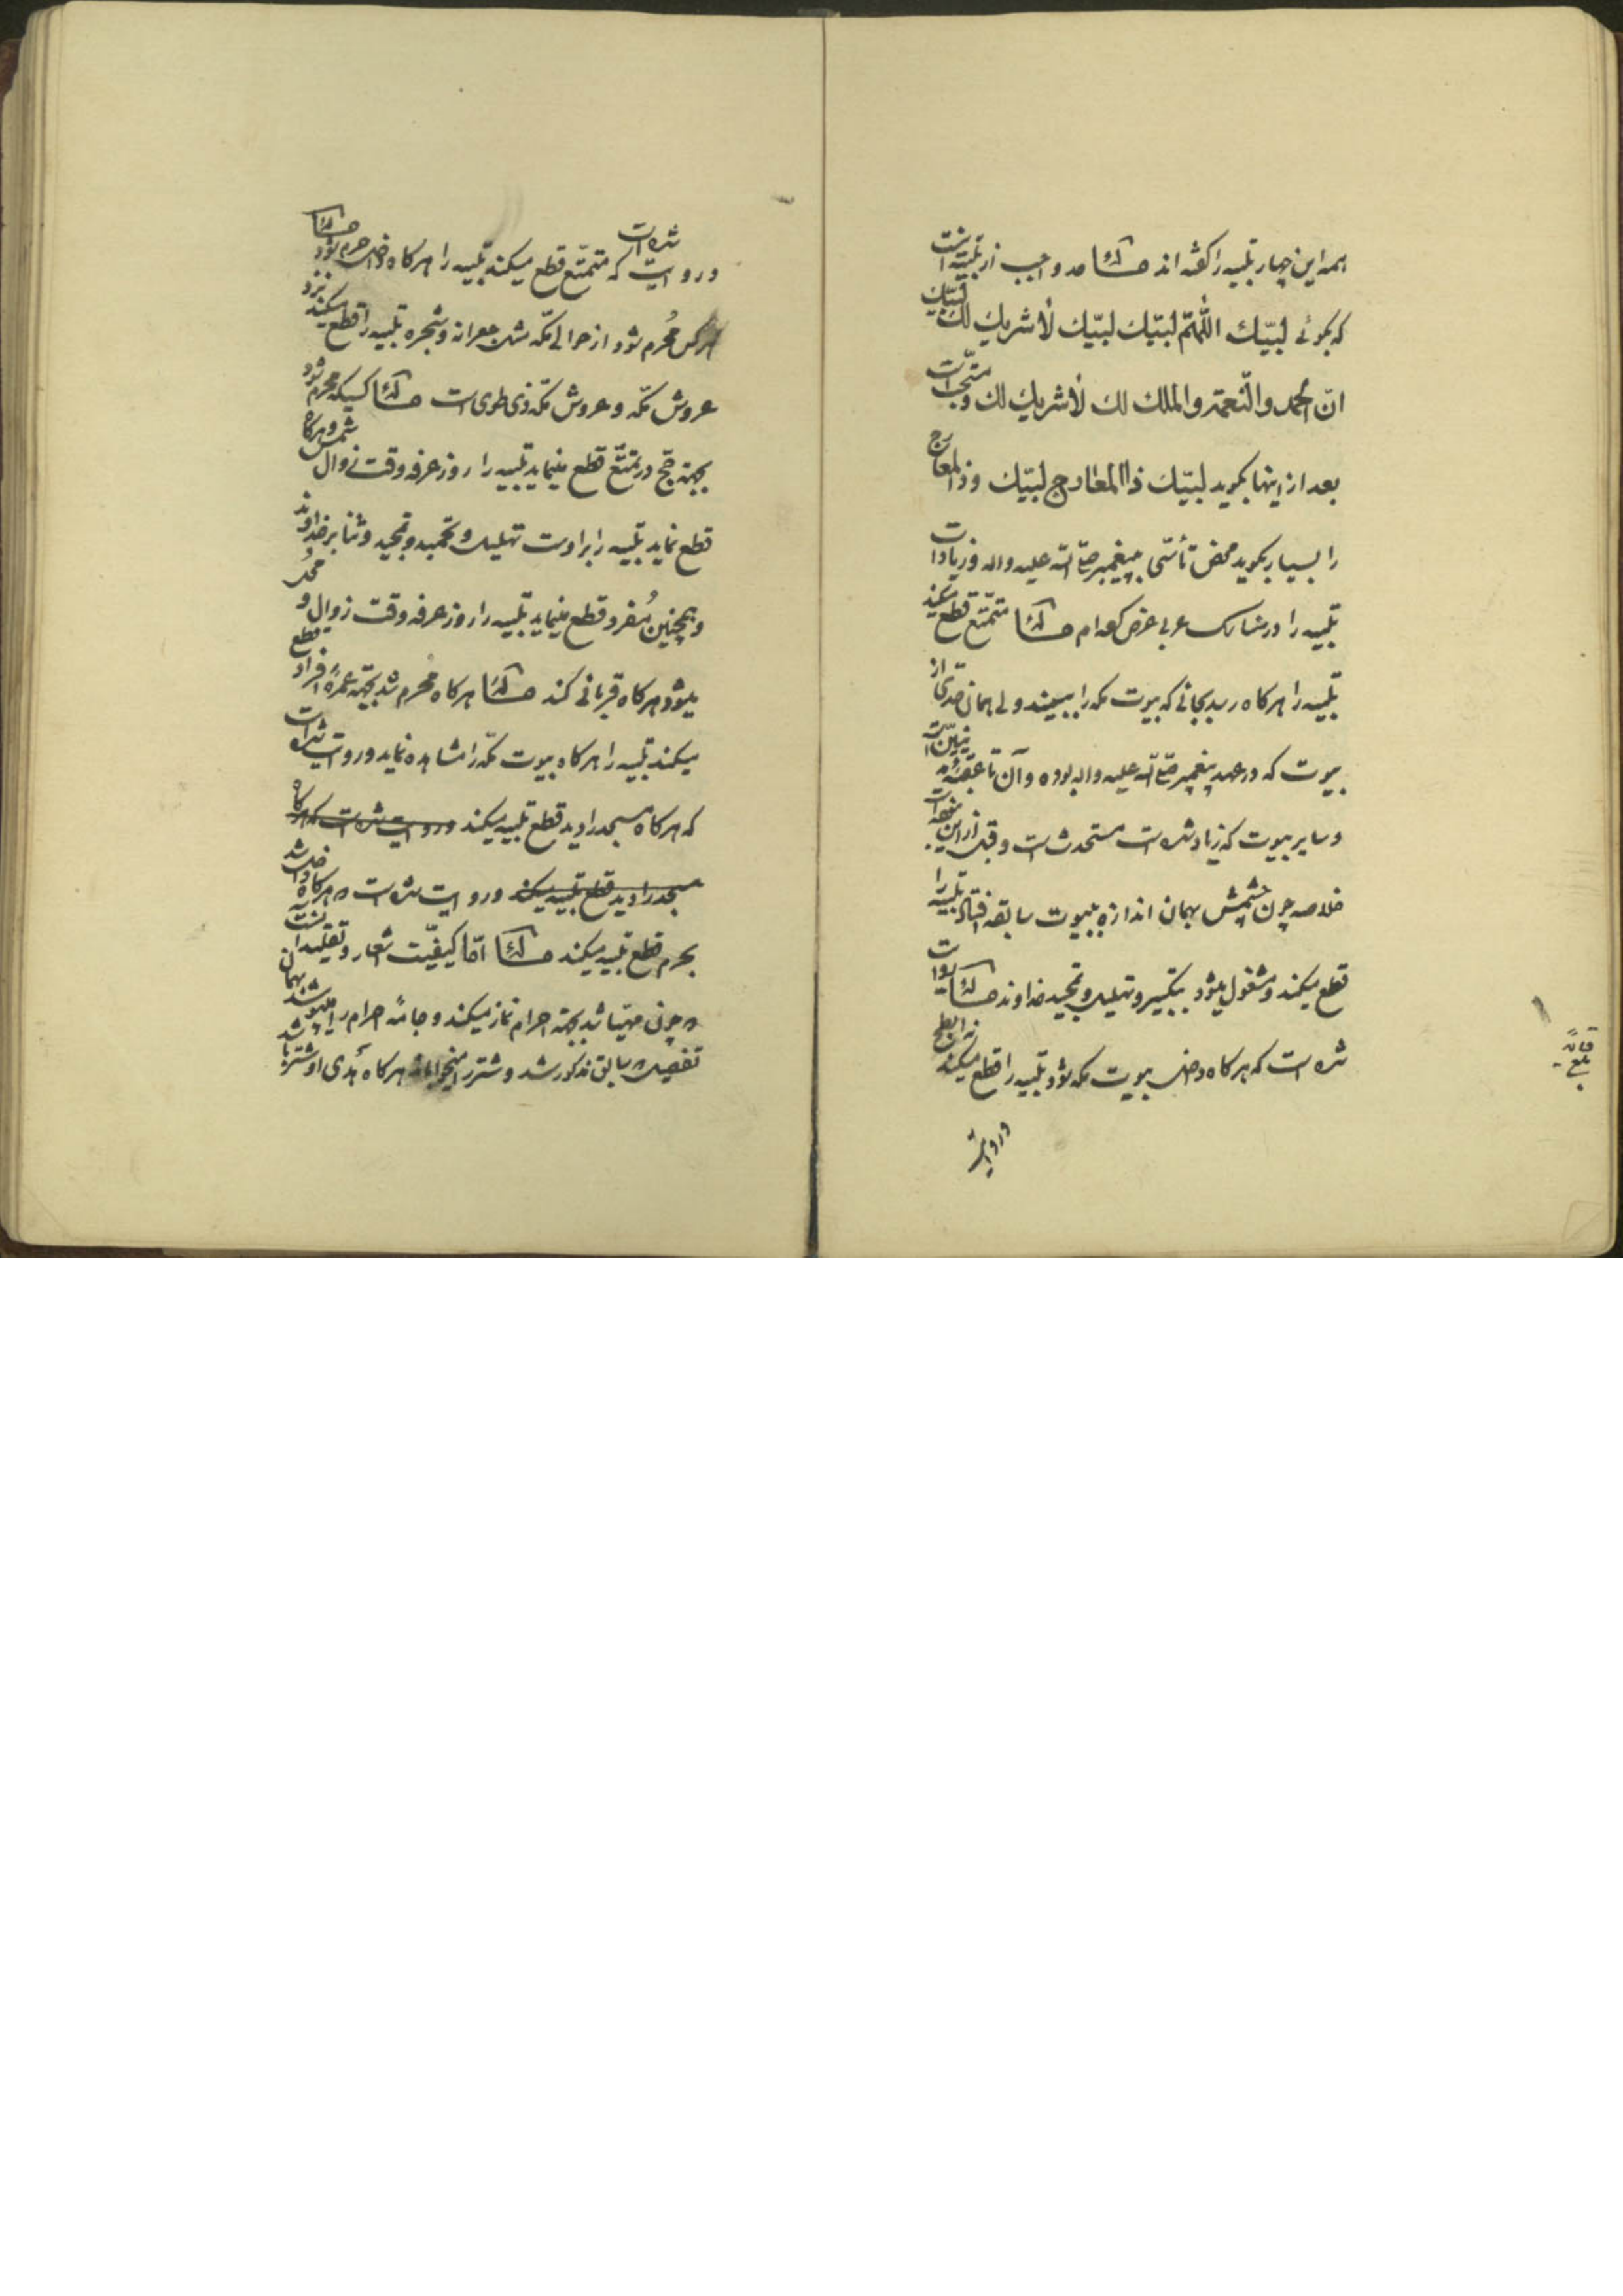 همه این چهار تلبیه را گفته اند مسئله حد واجب از تلبیه اینست
که بگوئی لبیّک اللّهمّ لبیّک لبیّک لا شریک لک لبیّک
انّ الحمد والنّعمة والملک لک لا شریک لک و مستحبّ است
بعد از اینها بگوید لبیّک ذا المعارج لبیّک و ذا المعارج
را بسیار بگوید محض تأسّی به پیغمبر صلی الله علیه و اله و زیادات
تلبیه را در مناسک عربی عرض کرده ام مسئله متمتّع قطع میکند
تلبیه را هرگاه رسد بجائی که بیوت مکه را ببیند ولی همان حدّی از
بیوت که در عهد پیغمبر صلی الله علیه و اله بوده و آن تا عقبه مدنیّین است
و سایر بیوت که زیاد شده است مستحدث است و قبل از این نبوده است
خلاصه چون چشمش بهمان اندازه بیوت سابقه افتاد تلبیه را
قطع میکند و مشغول میشود بتکبیر و تهلیل و تمجید خداوند مسئله روایت
شده است که هرگاه داخل بیوت مکه شود تلبیه را قطع میکند نه ابطح
و روایت
بلغ
و روایت شده است که متمتّع قطع میکند تلبیه را هرگاه داخل حرم شود مسئله
هرکس مُحرم شود از حوالی مکّه مثل جعرانه و شجره تلبیه را قطع میکند نزد
عروش مکّه و عروش مکّه ذی طوی است مسئله کسیکه محرم شود
بجهة حجّ در تمتّع قطع مینماید تلبیه را روز عرفه وقت زوال شمس و هرگاه
قطع نماید تلبیه را براوست تهلیل و تحمید و تمجید و ثنا بر خداوند
و همچنین مُفرد قطع مینماید تلبیه را روز عرفه وقت زوال و
میشود هرگاه قربانی کند مسئله هرگاه مُحرم شد بجهة عمرۀ افراد قطع
میکند تلبیه را هرگاه بیوت مکّه را مشاهده نماید و روایت شده است
که هرگاه مسجد را دید قطع تلبیه میکند و روایت شده است که هرگاه
مسجد را دید قطع تلبیه میکند و روایت شده است که هرگاه داخل شد
بحرم قطع تلبیه میکند مسئله امّا کیفیّت اشعار و تقلید اینست که
چون مهیّا شد بجهة احرام نماز میکند و جامۀ احرام را میپوشد بهمان
تفصیل که سابق مذکور شد و شتر را میخواباند هرگاه هَدی او شتر باشد